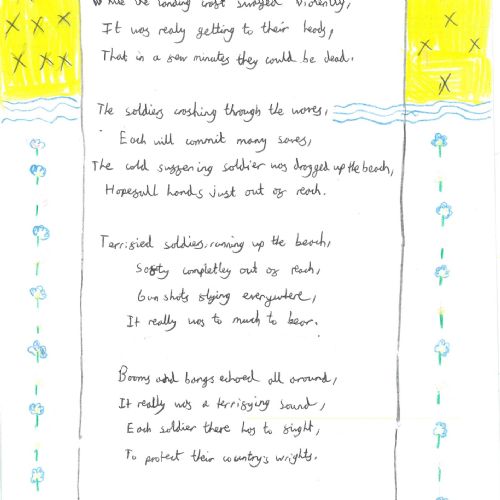 While the landing craft swayed violently,
It was realy getting to their heads,
That in a few minutes they could be dead.
The soldiers crashing through the waves,
Each will commit many saves,
The cold suffering soldier was dragged up the beach,
Hopefull hands just out of reach.
Terrified soldiers, running up the beach,
Safty completley out of reach,
Gun shots flying everywhere,
It really was to much to bear.
Booms and bangs echoed all around,
It really was a terrifying sound,
Each soldier there has to fight,
To protect their country's wrights.